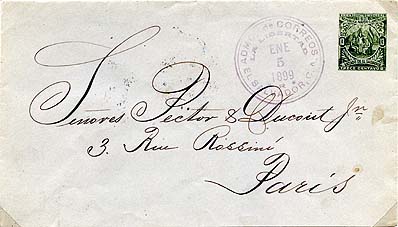 ADMON DE CORREOS
LA LIBERTAD
ENE
5
1899
SALVADOR, C.A.
Señores Pector & Ducout Jn.
3. Rue Rossini
Paris